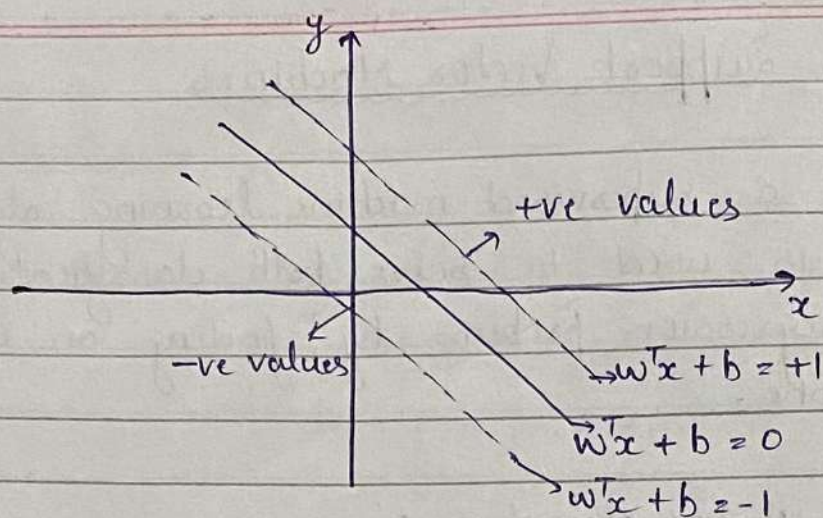 y
+ve values
x
-ve values
wᵀx + b = +1
wᵀx + b = 0
wᵀx + b = -1